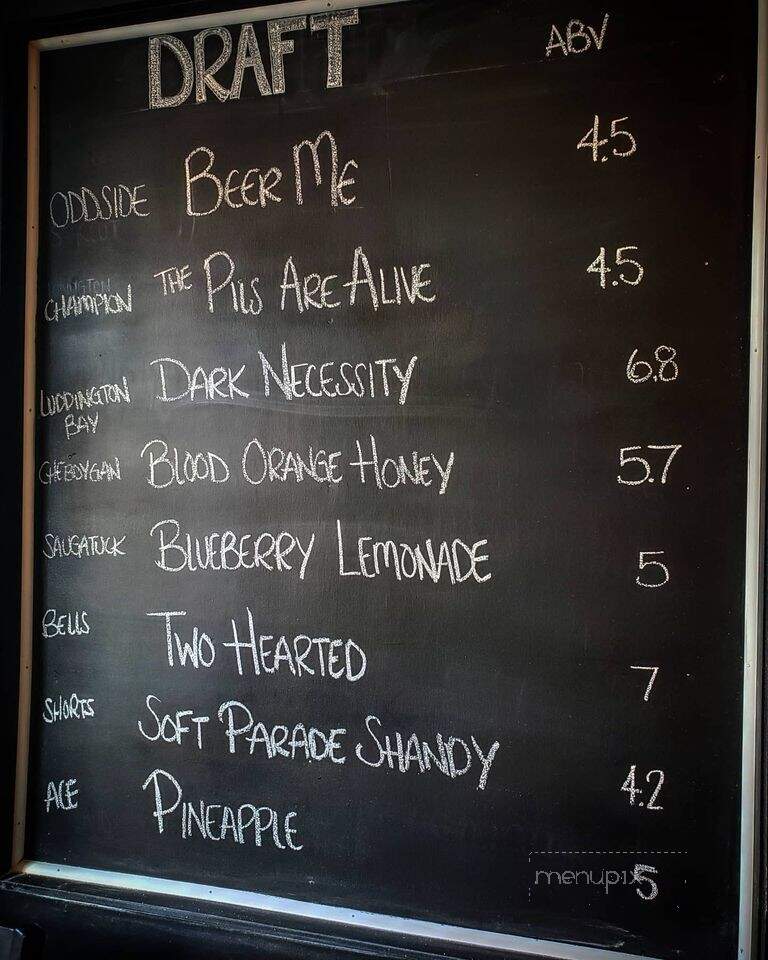 DRAFT ABV
ODDSIDE BEER ME 4.5
CHAMPION THE PILS ARE ALIVE 4.5
LUDDINGTON BAY DARK NECESSITY 6.8
CHEBOYGAN BLOOD ORANGE HONEY 5.7
SAUGATUCK BLUEBERRY LEMONADE 5
BELLS TWO HEARTED 7
SHORTS SOFT PARADE SHANDY 4.2
ACE PINEAPPLE 5
menupix